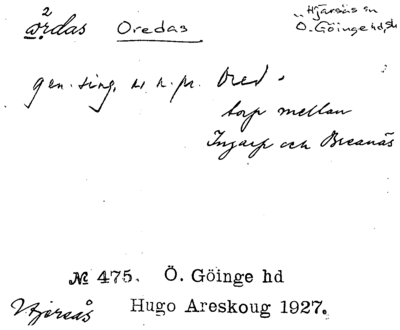 Oredas
Hjärsås sn
Ö. Göinge hd,
gen. sing. av n. pr. Ored.
torp mellan
Ingarp och Breanäs
№ 475. Ö. Göinge hd
Hjersås Hugo Areskoug 1927.